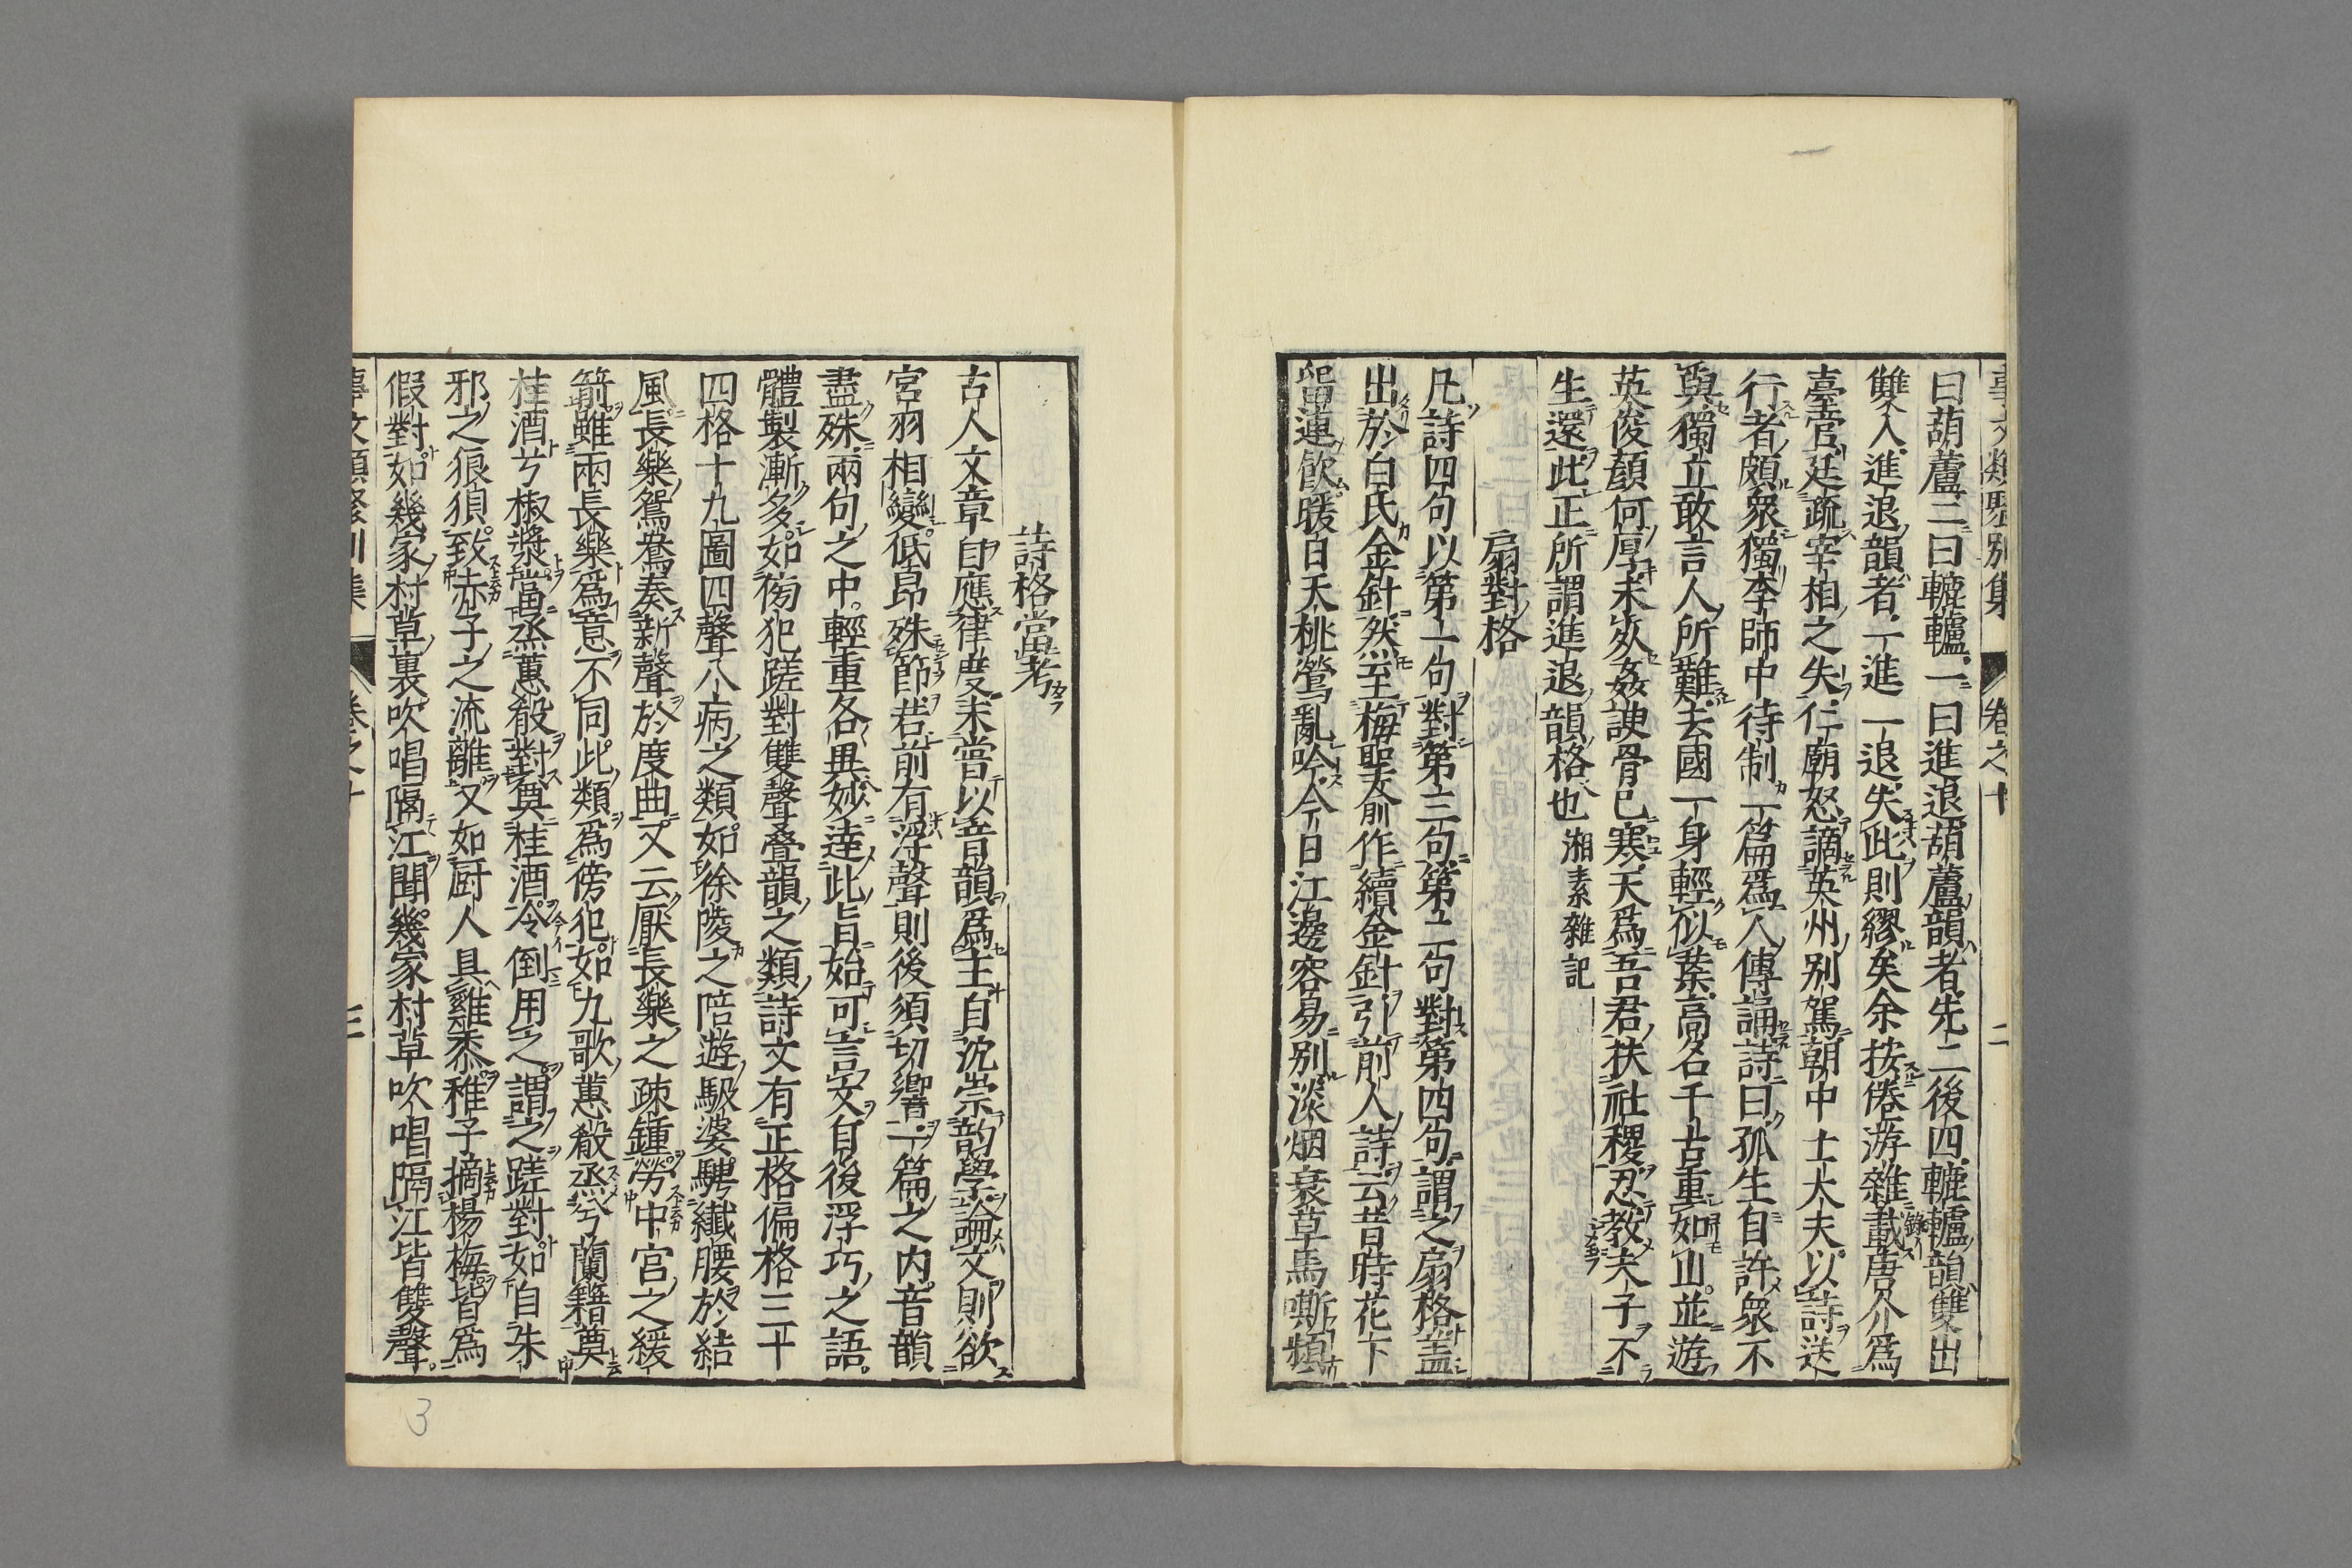 事文類聚別集 卷之十 二
曰葫蘆二曰轆轤一曰進退葫蘆韻者先二後四轆轤韻雙出
雙入進退韻者一進一退失此則繆矣余按倦游雜載唐介爲
臺官廷疏宰相之失仁廟怒謫英州別駕朝中士大夫以詩送
行者頗衆獨李師中待制一篇爲人傳誦詩曰孤生自許衆不
與獨立敢言人所難去國一身輕似葉高名千古重如山並游
英俊顔何厚未死姦諛骨已寒天爲吾君扶社稷忍教夫子不
生還此正所謂進退韻格也 湘素雜記
扇對格
凡詩四句以第一句對第三句第二句對第四句謂之扇格蓋
出於白氏金針然至梅聖俞作續金針引前人詩云昔時花下
留連飲暖日夭桃鶯亂吟今日江邊容易別淡烟衰草馬嘶頻
詩格當考
古人文章自應律度未嘗以音韻爲主自沈崇韵學論文則欲
宮羽相變低昂殊節若前有浮聲則後須切響一篇之内音韻
盡殊兩句之中輕重各異妙達此旨始可言文自後浮巧之語
體製漸多如傍犯蹉對雙聲疊韻之類詩文有正格偏格三十
四格十九圖四聲八病之類如徐陵之陪遊馺娑騁纖腰於結
風長樂鴛鴦奏新聲於度曲又云厭長樂之疎鍾勞中宮之緩
箭雖兩長樂爲意不同此類爲傍犯如九歌蕙殽烝兮蘭籍奠
桂酒兮椒漿當烝蕙殽對奠桂酒冷倒用之謂之蹉對如自朱
邪之狼狽致赤子之流離又如厨人具雞黍稚子摘楊梅皆爲
假對如幾家村草裏吹唱隔江聞幾家村草吹唱隔江皆雙聲
事文類聚別集 卷之十 三
3